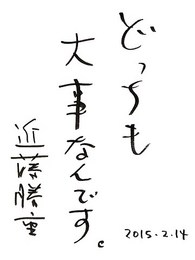 どっちも
大事なんです。
近藤勝重
2015.2.14